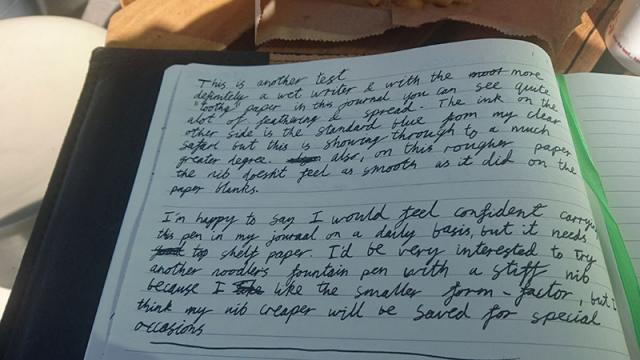 This is another test
definitely a wet writer & with the most more
"toothy" paper in this journal you can see quite
alot of feathering & spread. The ink on the
other side is the standard blue from my clear
safari but this is showing through to a much
greater degree. also, on this rougher paper
the nib doesn't feel as smooth as it did on the
paper blanks.
I'm happy to say I would feel confident carryin
this pen in my journal on a daily basis, but it needs
top shelf paper. I'd be very interested to try
another noodlers fountain pen with a stiff nib
because I like the smaller form-factor, but i
think my nib creaper will be saved for special
occasions